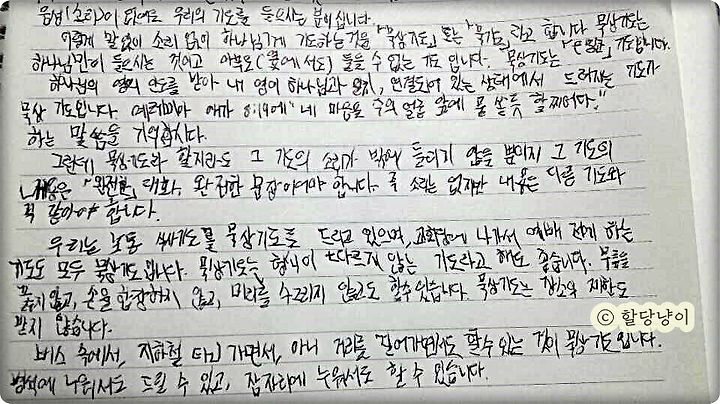 음성(소리)이 없어도 우리의 기도를 들으시는 분이십니다.
이렇게 말없이 소리 없이 하나님께 기도하는 것을 「묵상기도」 혹은 「묵기도」라고 합니다 묵상기도는
하나님만이 들으시는 것이고 아무도(옆에서도) 들을 수 없는 기도 입니다. 묵상기도는 기도입니다.
하나님의 영의 인도를 받아 내 영이 하나님과 연결되어 있는 상태에서 드려지는 기도가
묵상 기도입니다. 예레미야 애가 2:19에 "네 마음을 주의 얼굴 앞에 물 쏟듯 할찌어다."
하는 말씀을 기억합시다.
그런데 묵상기도라 할지라도 그 기도의 소리가 밖에 들리지 않을 뿐이지 그 기도의
내용은 「완전한」 대화, 완전한 문장이어야 합니다. 즉 소리는 없지만 내용은 다른 기도와
꼭 같아야 합니다.
우리는 보통 식사기도를 묵상기도로 드리고 있으며, 교회당에 나가서 예배 전에 하는
기도도 모두 묵상기도입니다. 묵상기도는 형식이 따르지 않는 기도라고 해도 좋습니다. 무릎을
꿇지 않고, 손을 합장하지 않고, 머리를 수그리지 않고도 할 수 있습니다. 묵상기도는 장소의 제한도
받지 않습니다.
버스 속에서, 지하철 타고 가면서, 아니 거리를 걸어가면서도 할 수 있는 것이 묵상기도입니다.
병석에 누워서도 드릴 수 있고, 잠자리에 누워서도 할 수 있습니다.
© 할당냥이